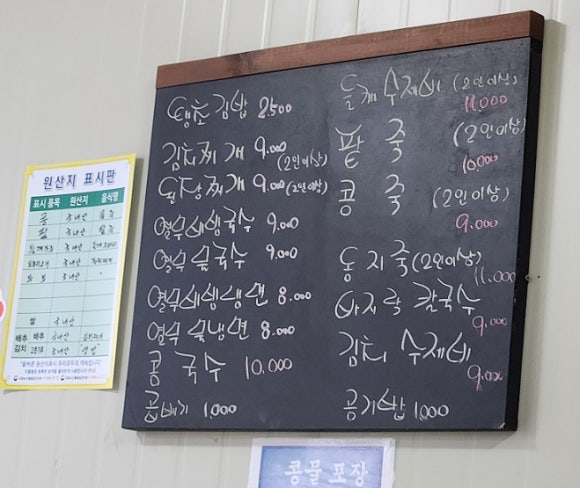 땡초김밥 2.500
김치찌개 9.000
(2인이상)
된장찌개 9.000 (2인이상)
열무비빔국수 9.000
열무 물국수 9.000
열무비빔냉면 8.000
열무 물냉면 8.000
콩 국수 10.000
곱배기 1.000
들깨수제비 (2인이상)
11.000
팥 죽 (2인이상)
10.000
콩 죽 (2인이상)
9.000
동지죽 (2인이상)
11.000
바지락 칼국수
9.000
김치 수제비
9.000
공기밥 1000
원산지 표시판
표시품목 원산지 음식명
콩 국내산 콩죽
팥 국내산 팥죽
국내산
국내산
국내산
쌀 국내산
배추김치 배추 국내산 김치찌개
국내산
콩물 포장